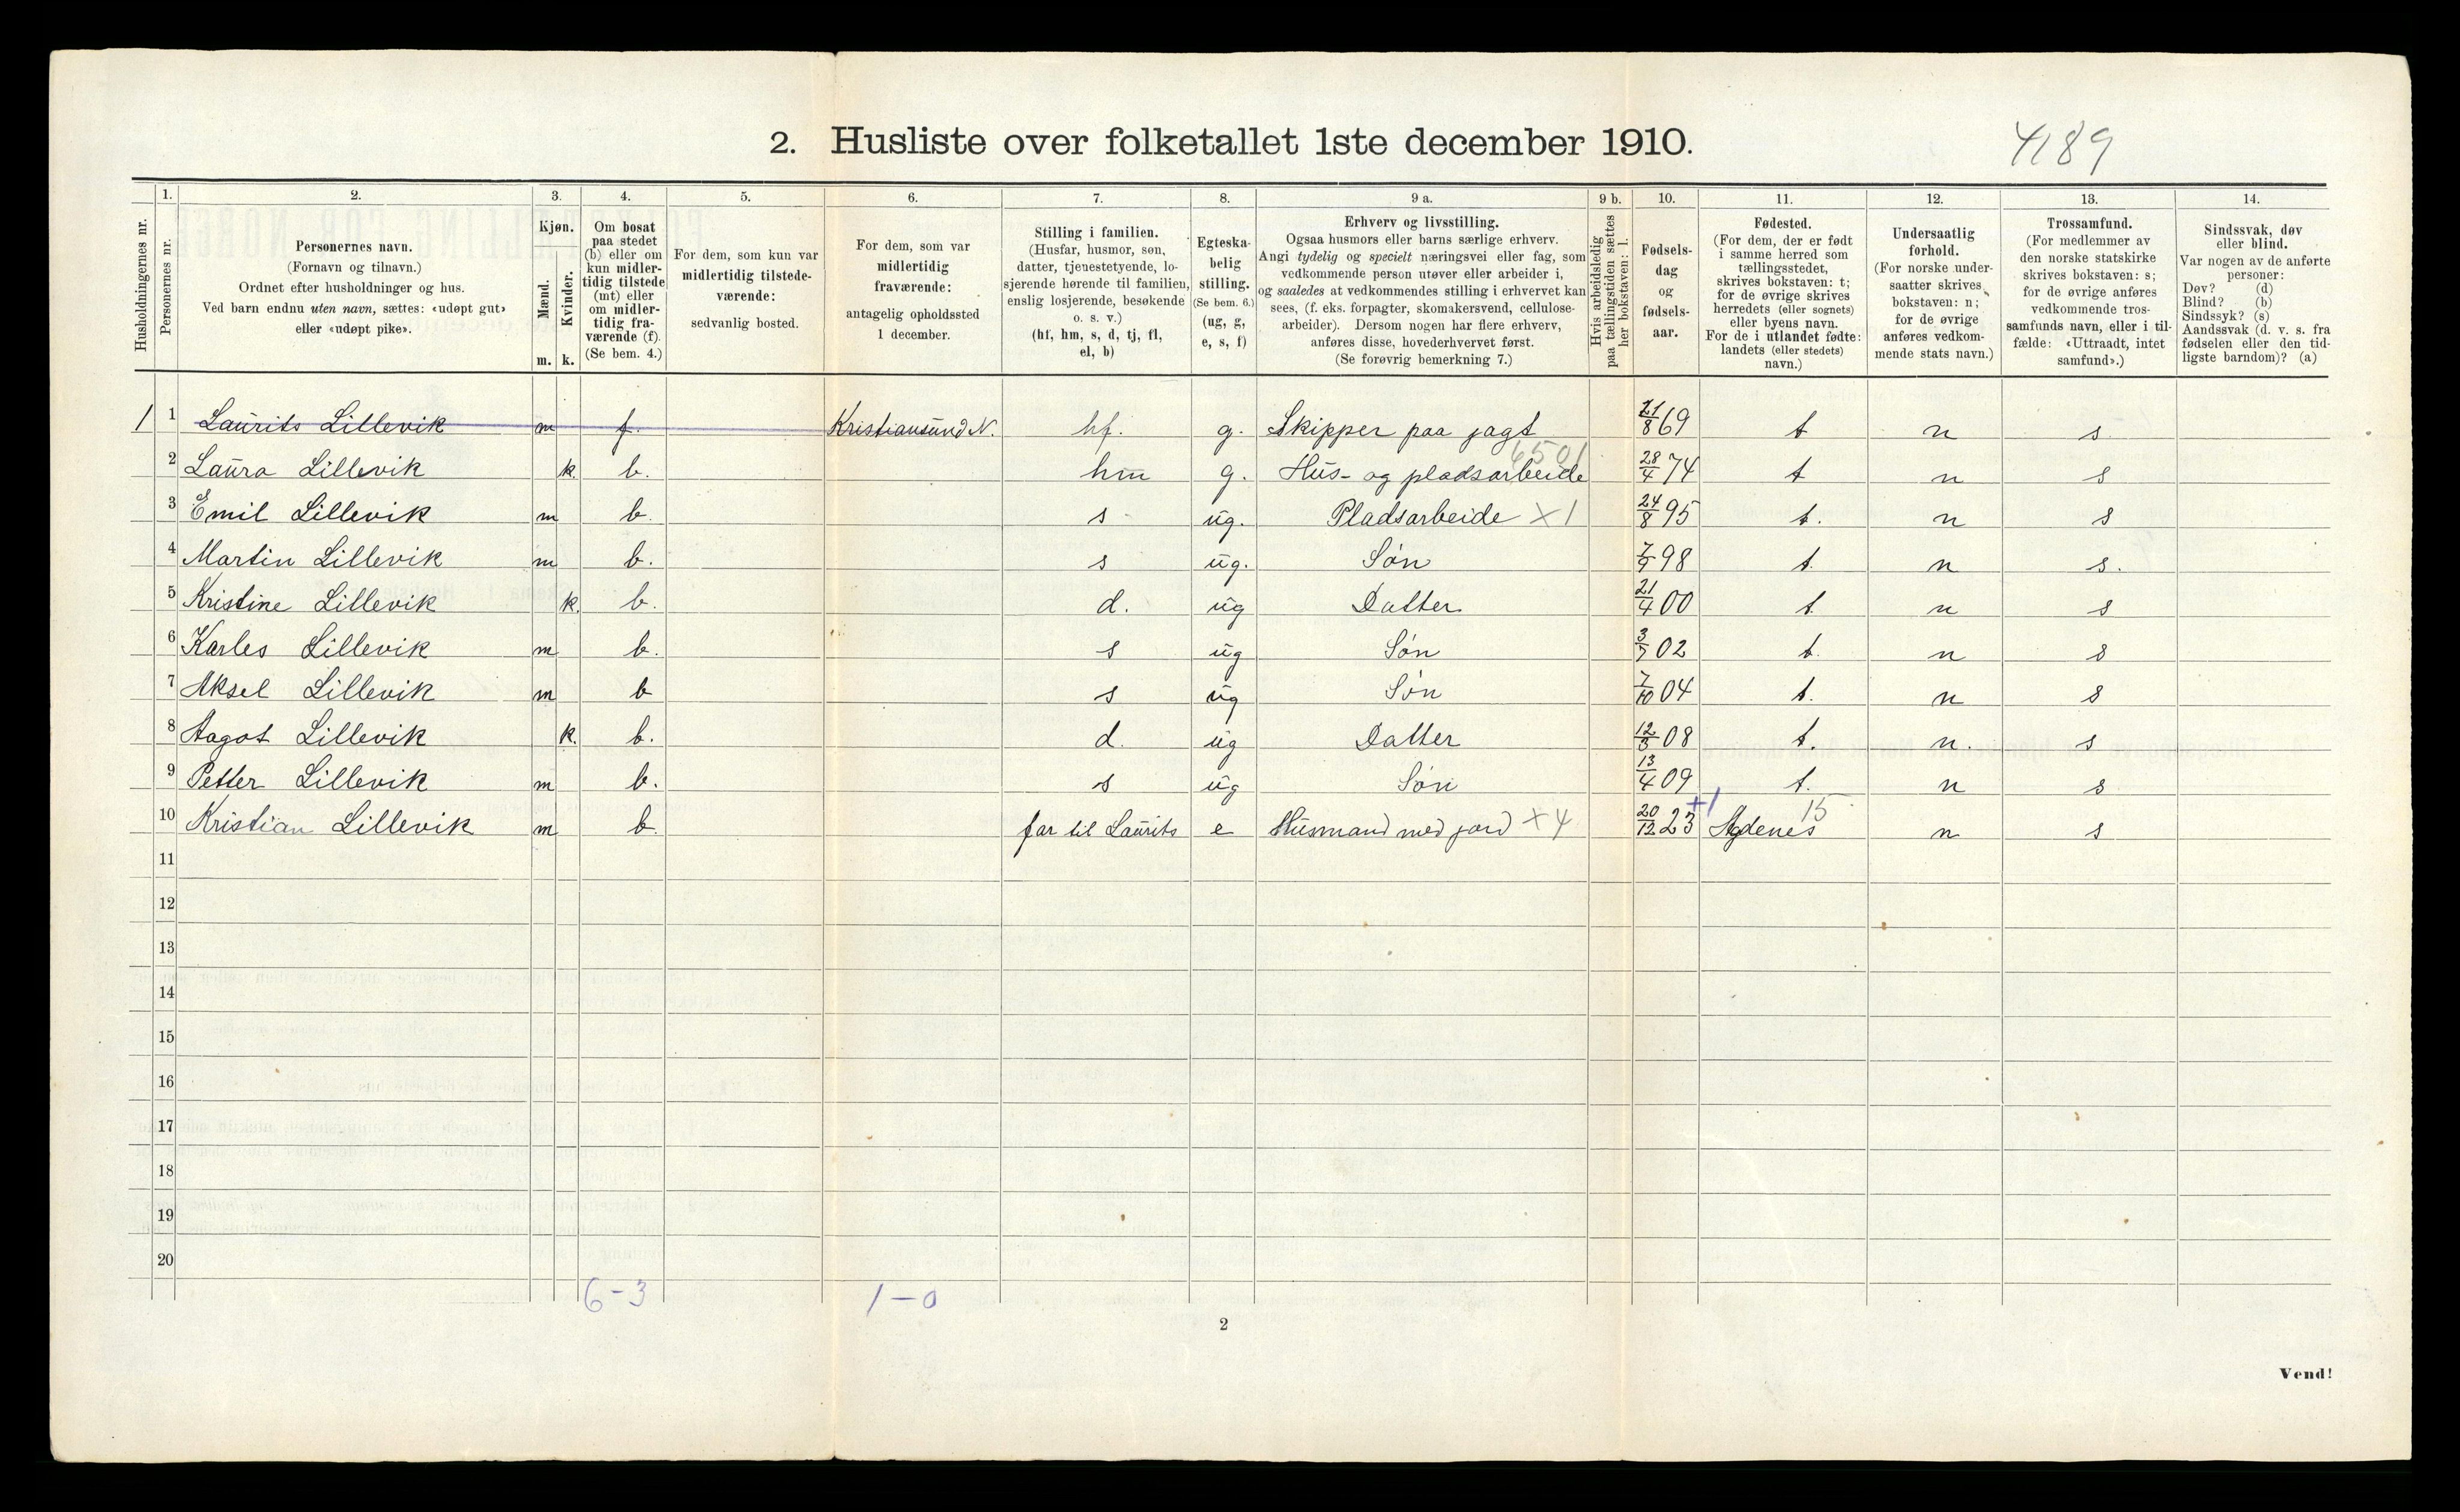 2. Husliste over folketallet 1ste december 1910.
4189
Husholdningernes nr.
1. Personernes nr.
2. Personernes navn.
(Fornavn og tilnavn.)
Ordnet efter husholdninger og hus.
Ved barn endnu uten navn, sættes: «udøpt gut»
eller «udøpt pike».
3. Kjøn.
Mænd. m.
Kvinder. k.
4. Om bosat
paa stedet
(b) eller om
kun midler-
tidig tilstede
(mt) eller
om midler-
tidig fra-
værende (f).
(Se bem. 4.)
5. For dem, som kun var
midlertidig tilstede-
værende:
sedvanlig bosted.
6. For dem, som var
midlertidig
fraværende:
antagelig opholdssted
1 december.
7. Stilling i familien.
(Husfar, husmor, søn,
datter, tjenestetyende, lo-
sjerende hørende til familien,
enslig losjerende, besøkende
o. s. v.)
(hf, hm, s, d, tj, fl,
el, b)
8. Egteska-
belig
stilling.
(Se bem. 6.)
(ug, g,
e, s, f)
9 a. Erhverv og livsstilling.
Ogsaa husmors eller barns særlige erhverv.
Angi tydelig og specielt næringsvei eller fag, som
vedkommende person utøver eller arbeider i,
og saaledes at vedkommendes stilling i erhvervet kan
sees, (f. eks. forpagter, skomakersvend, cellulose-
arbeider). Dersom nogen har flere erhverv,
anføres disse, hovederhvervet først.
(Se forøvrig bemerkning 7.)
9 b. Hvis arbeidsledig
paa tællingstiden sættes
her bokstaven: l.
10. Fødsels-
dag
og
fødsels-
aar.
11. Fødested.
(For dem, der er født
i samme herred som
tællingsstedet,
skrives bokstaven: t;
for de øvrige skrives
herredets (eller sognets)
eller byens navn.
For de i utlandet fødte:
landets (eller stedets)
navn.)
12. Undersaatlig
forhold.
(For norske under-
saatter skrives
bokstaven: n;
for de øvrige
anføres vedkom-
mende stats navn.)
13. Trossamfund.
(For medlemmer av
den norske statskirke
skrives bokstaven: s;
for de øvrige anføres
vedkommende tros-
samfunds navn, eller i til-
fælde: «Uttraadt, intet
samfund».)
14. Sindssvak, døv
eller blind.
Var nogen av de anførte
personer:
Døv? (d)
Blind? (b)
Sindssyk? (s)
Aandssvak (d. v. s. fra
fødselen eller den tid-
ligste barndom)? (a)
1 1 Laurits Lillevik m f. Kristiansund N. hf. g. Skipper paa jagt 21/8 69 t n s
6501
2 Laura Lillevik k. b. hm g. Hus- og pladsarbeide 28/4 74 t n s
3 Emil Lillevik m b. s ug. Pladsarbeide X1 24/8 95 t. n s
4 Martin Lillevik m b. s ug. Søn 98 t. n s.
5 Kristine Lillevik k. b. d. ug Datter 21/4 00 t. n s
6 Karles Lillevik m b. s ug Søn 02 t. n s
7 Aksel Lillevik m b s ug Søn 7/10 04 t. n s
8 Aagot Lillevik k. b. d. ug Datter 12/3 08 t. n. s
9 Petter Lillevik m b. s ug Søn 13/4 09 t. n s
+1 15
10 Kristian Lillevik m b. far til Laurits e Husmand med jord X4 20/12 23 Agdenes n s
11
12
13
14
15
16
17
18
19
20
6-3 1-0
2
Vend!